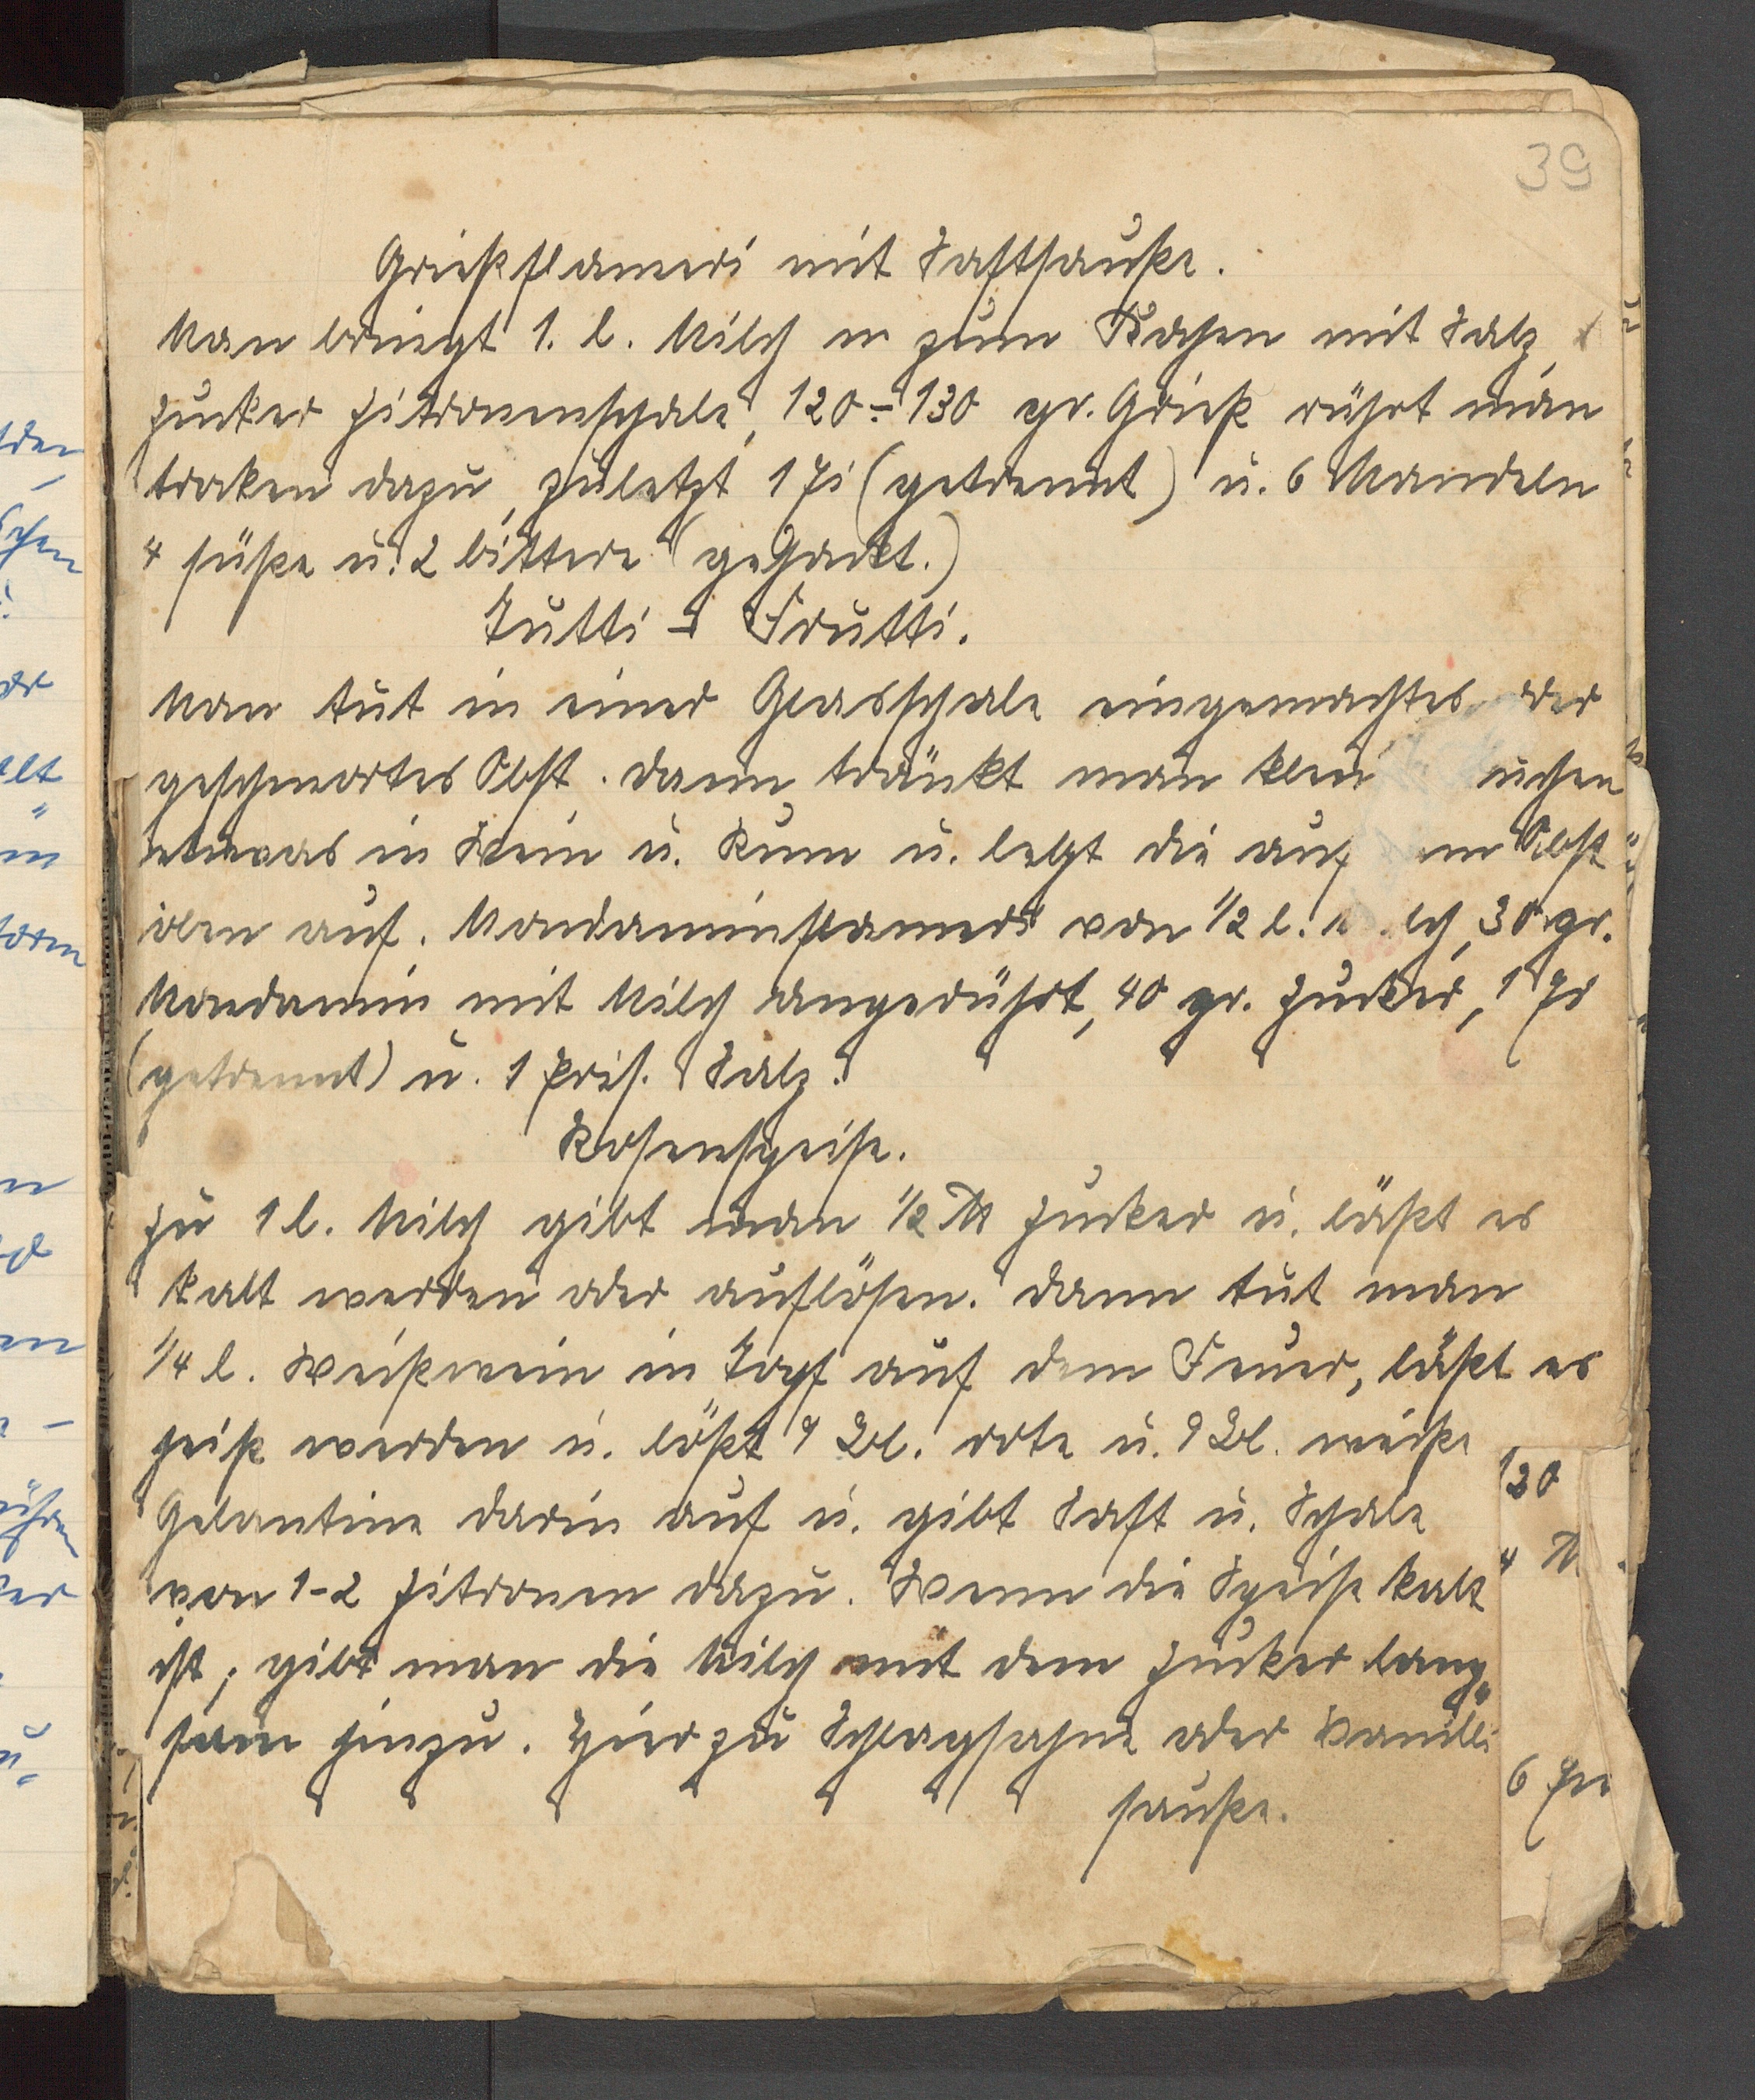 39
Grießflameri mit Saftsauße.
Man bringt 1. l. Milch m zum Kochen mit Salz,
Zucker Zitronenschale, 120-130 gr. Grieß rührt man
trocken dazu, zuletzt 1 Ei (getrennt) u. 6 Mandeln
4 süße u. 2 bittere (gehackt.)
Tutti - Frutti.
Man tut in einer Glasschale eingemachtes oder
geschmortes Obst. dann tränkt man klei uchen
etwas in Wein u. Rum u. legt die auf em Obst
oben auf. Mondaminflameri von 1/2 l. M lch, 30 gr.
Mondamin mit Milch angerührt, 40 gr. Zucker, 1 Ei
(getrennt) u. 1 Pris. Salz.
Rosenspeise.
Zu 1 l. Milch gibt man 1/2 ℔ Zucker u. läßt es
kalt werden oder auflösen. dann tut man
1/4 l. Weißwein in Topf auf dem Feuer, läßt es
heiß werden u. lößt 9 Bl. rote u. 9 Bl. weiße
Gelantine darin auf u. gibt Saft u. Schale
von 1-2 Zitronen dazu. Wenn die Speise kalt
ist, gibt man die Milch mit dem Zucker lang„
sam hinzu. Hierzu Schlagsahne oder Vanilli
sauße.
120
4 ℔
6 Ei